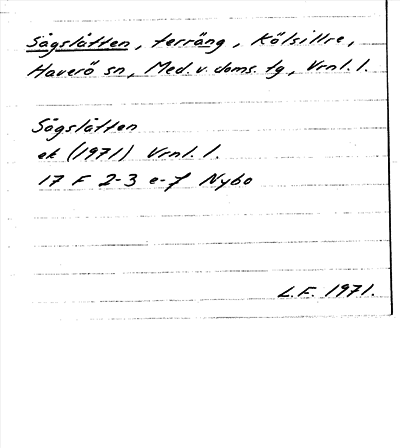 Sågslåtten, terräng, Kölsillre,
Haverö sn, Med. v. doms. tg, Vrnl. l.
Sågslåtten
ek (1971) Vrnl. l.
17 F 2-3 e-f Nybo
L.F. 1971.